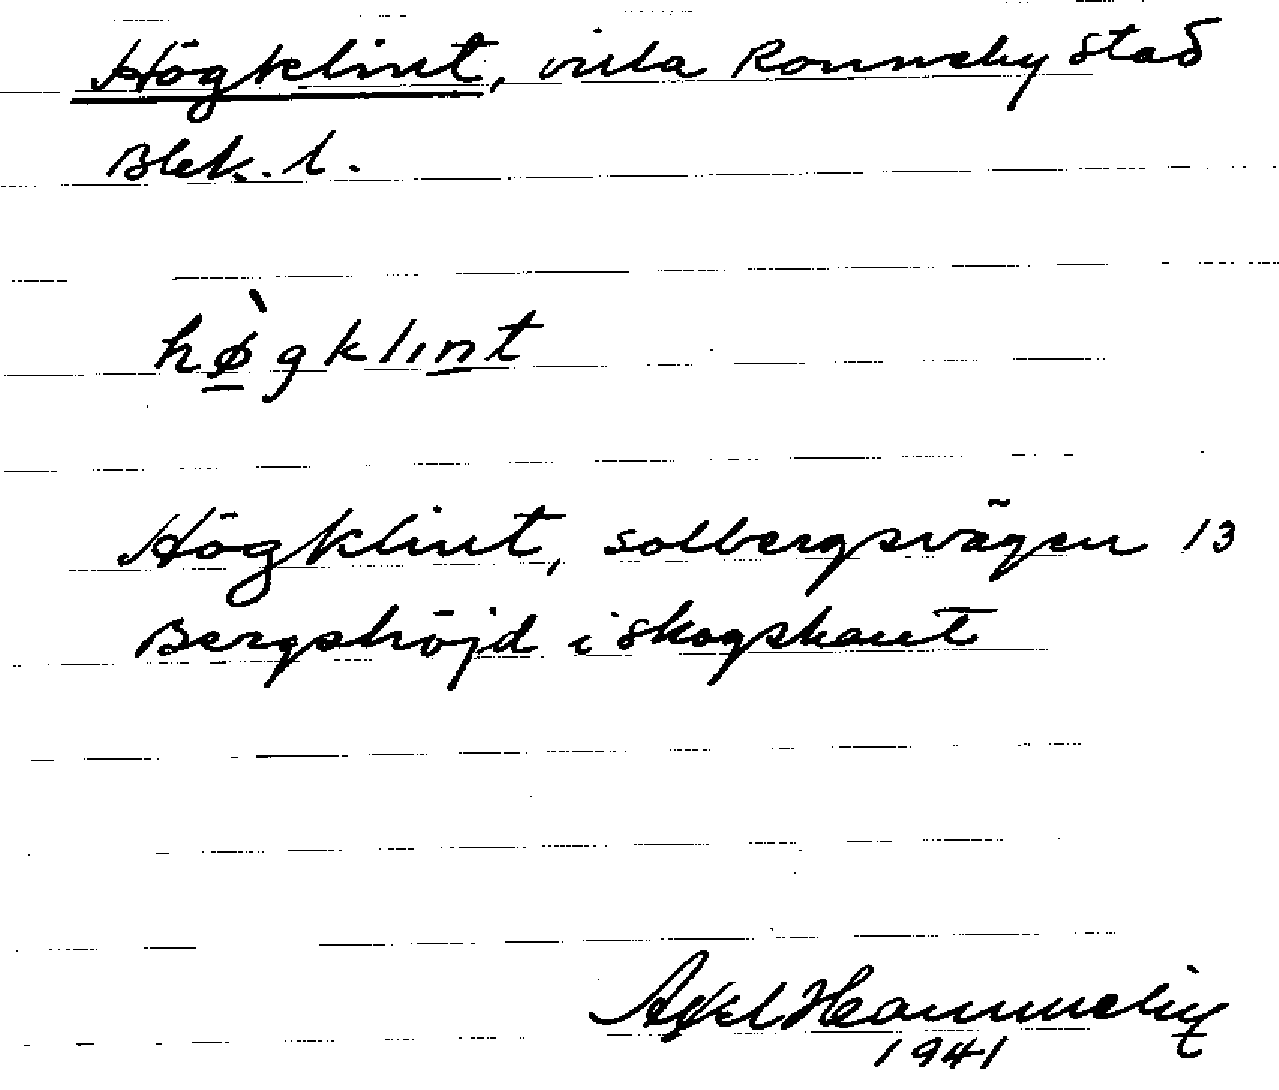 Högklint, villa Ronneby stad
Blek. l.
hø̀gklınt
Högklint, solbergsvägen 13
Bergshöjd i skogskant
Axel
1941